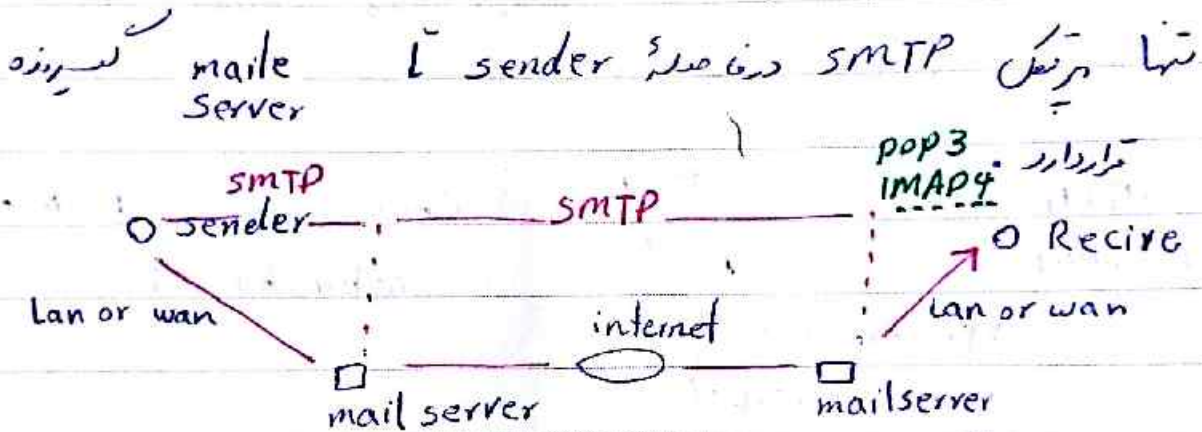 تنها پرتکل SMTP در فاصلهٔ sender تا maile server گیرنده
قرار دارد.
pop3
IMAP4
SMTP
SMTP
sender
Recire
Lan or wan
internet
Lan or wan
mail server
mailserver